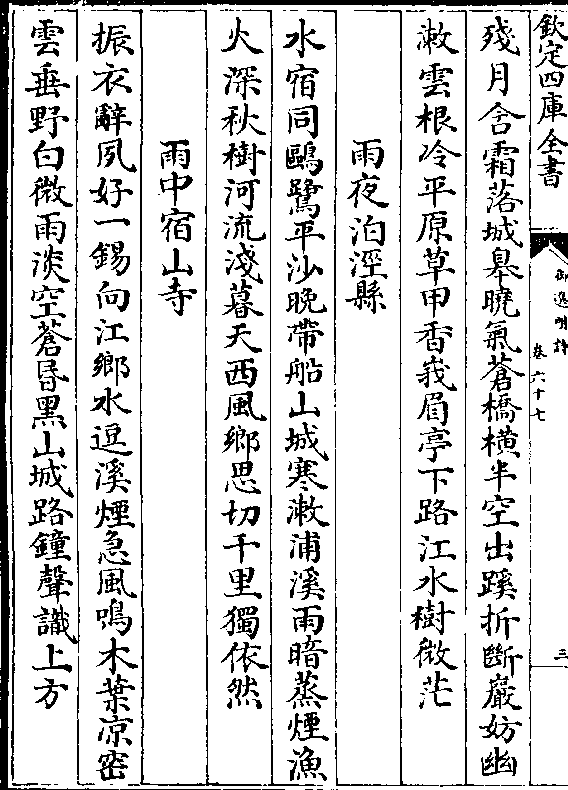 欽定四庫全書
御選明詩
卷六十七
三
殘月含霜落城臯曉氣蒼橋橫半空出蹊折斷巖妨幽
漱雲根冷平原草甲香峩眉亭下路江水樹微茫
雨夜泊涇縣
水宿同鷗鷺平沙晚帶船山城寒漱浦溪雨暗蒸煙漁
火深秋樹河流淺暮天西風鄉思切千里獨依然
雨中宿山寺
振衣辭夙好一錫向江鄉水逗溪煙急風鳴木葉凉密
雲垂野白微雨淡空蒼昏黑山城路鐘聲識上方